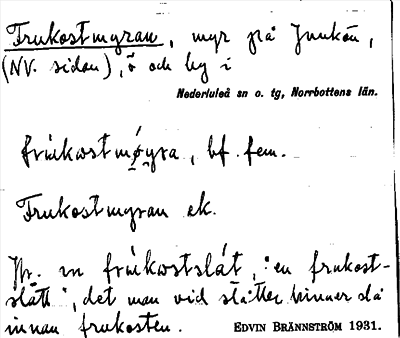 Frukostmyran, myr på Junkön,
(NV. sidan), ö och by i
Nederluleå sn o. tg, Norrbottens län.
frúkωstmǿyra, bf. fem.
Frukostmyran ek.
Jfr. en frúkωstslåt, : en frukost-
slått :, det man vid slåtter hinner slå
innan frukosten. EDVIN BRÄNNSTRÖM 1931.